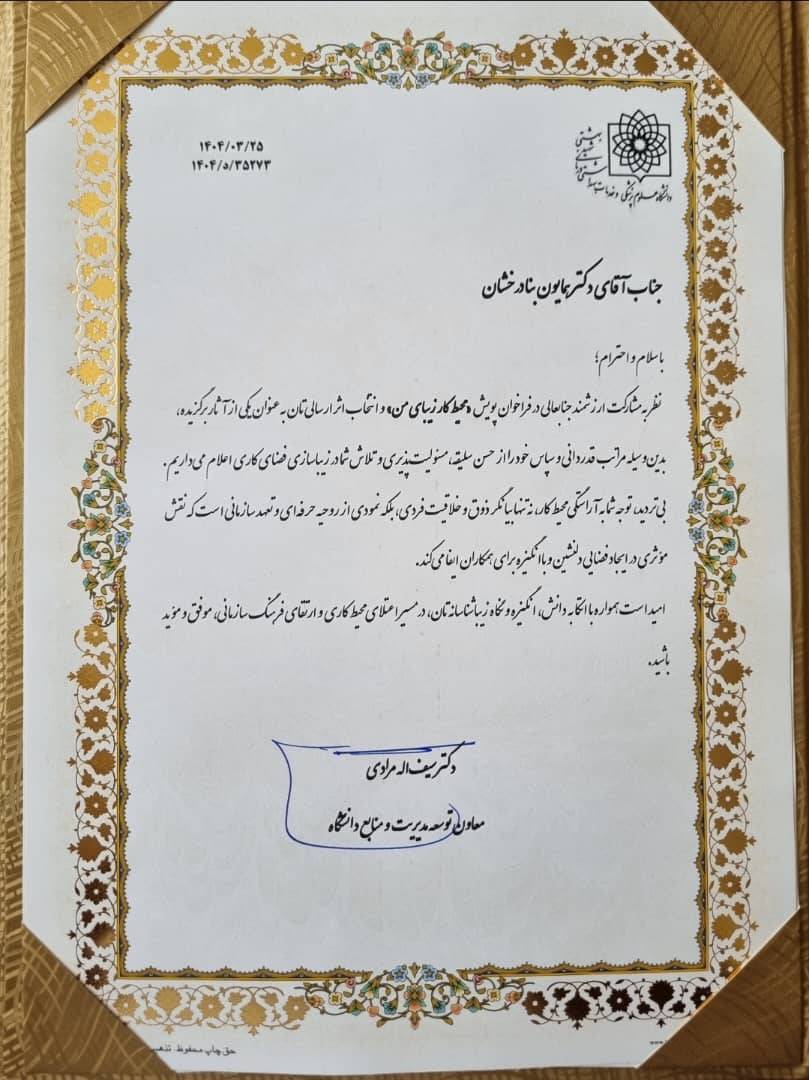 ۱۴۰۴/۰۳/۲۵
۱۴۰۴/۵/۳۵۲۷۳
دانشگاه علوم پزشکی و خدمات
شهید بهشتی
جناب آقای دکتر همایون بنادرخشان
با سلام و احترام؛
نظر به مشارکت ارزشمند جنابعالی در فراخوان پویش «محیط کار زیبای من» و انتخاب اثر ارسالی‌تان به عنوان یکی از آثار برگزیده،
بدین وسیله مراتب قدردانی و سپاس خود را از حسن سلیقه، مسئولیت‌پذیری و تلاش شما در زیباسازی فضای کاری اعلام می‌داریم.
بی‌تردید، توجه شما به آراستگی محیط کار، نه تنها بیانگر ذوق و خلاقیت فردی، بلکه نمودی از روحیه حرفه‌ای و تعهد سازمانی است که نقش
مؤثری در ایجاد فضایی دلنشین و با انگیزه برای همکاران ایفا می‌کند.
امید است همواره با اتکا به دانش، انگیزه و نگاه زیباشناسانه‌تان، در مسیر اعتلای محیط کاری و ارتقای فرهنگ سازمانی، موفق و مؤید
باشید.
دکتر سیف اله مرادی
معاون توسعه مدیریت و منابع دانشگاه
حق چاپ محفوظ.
www.